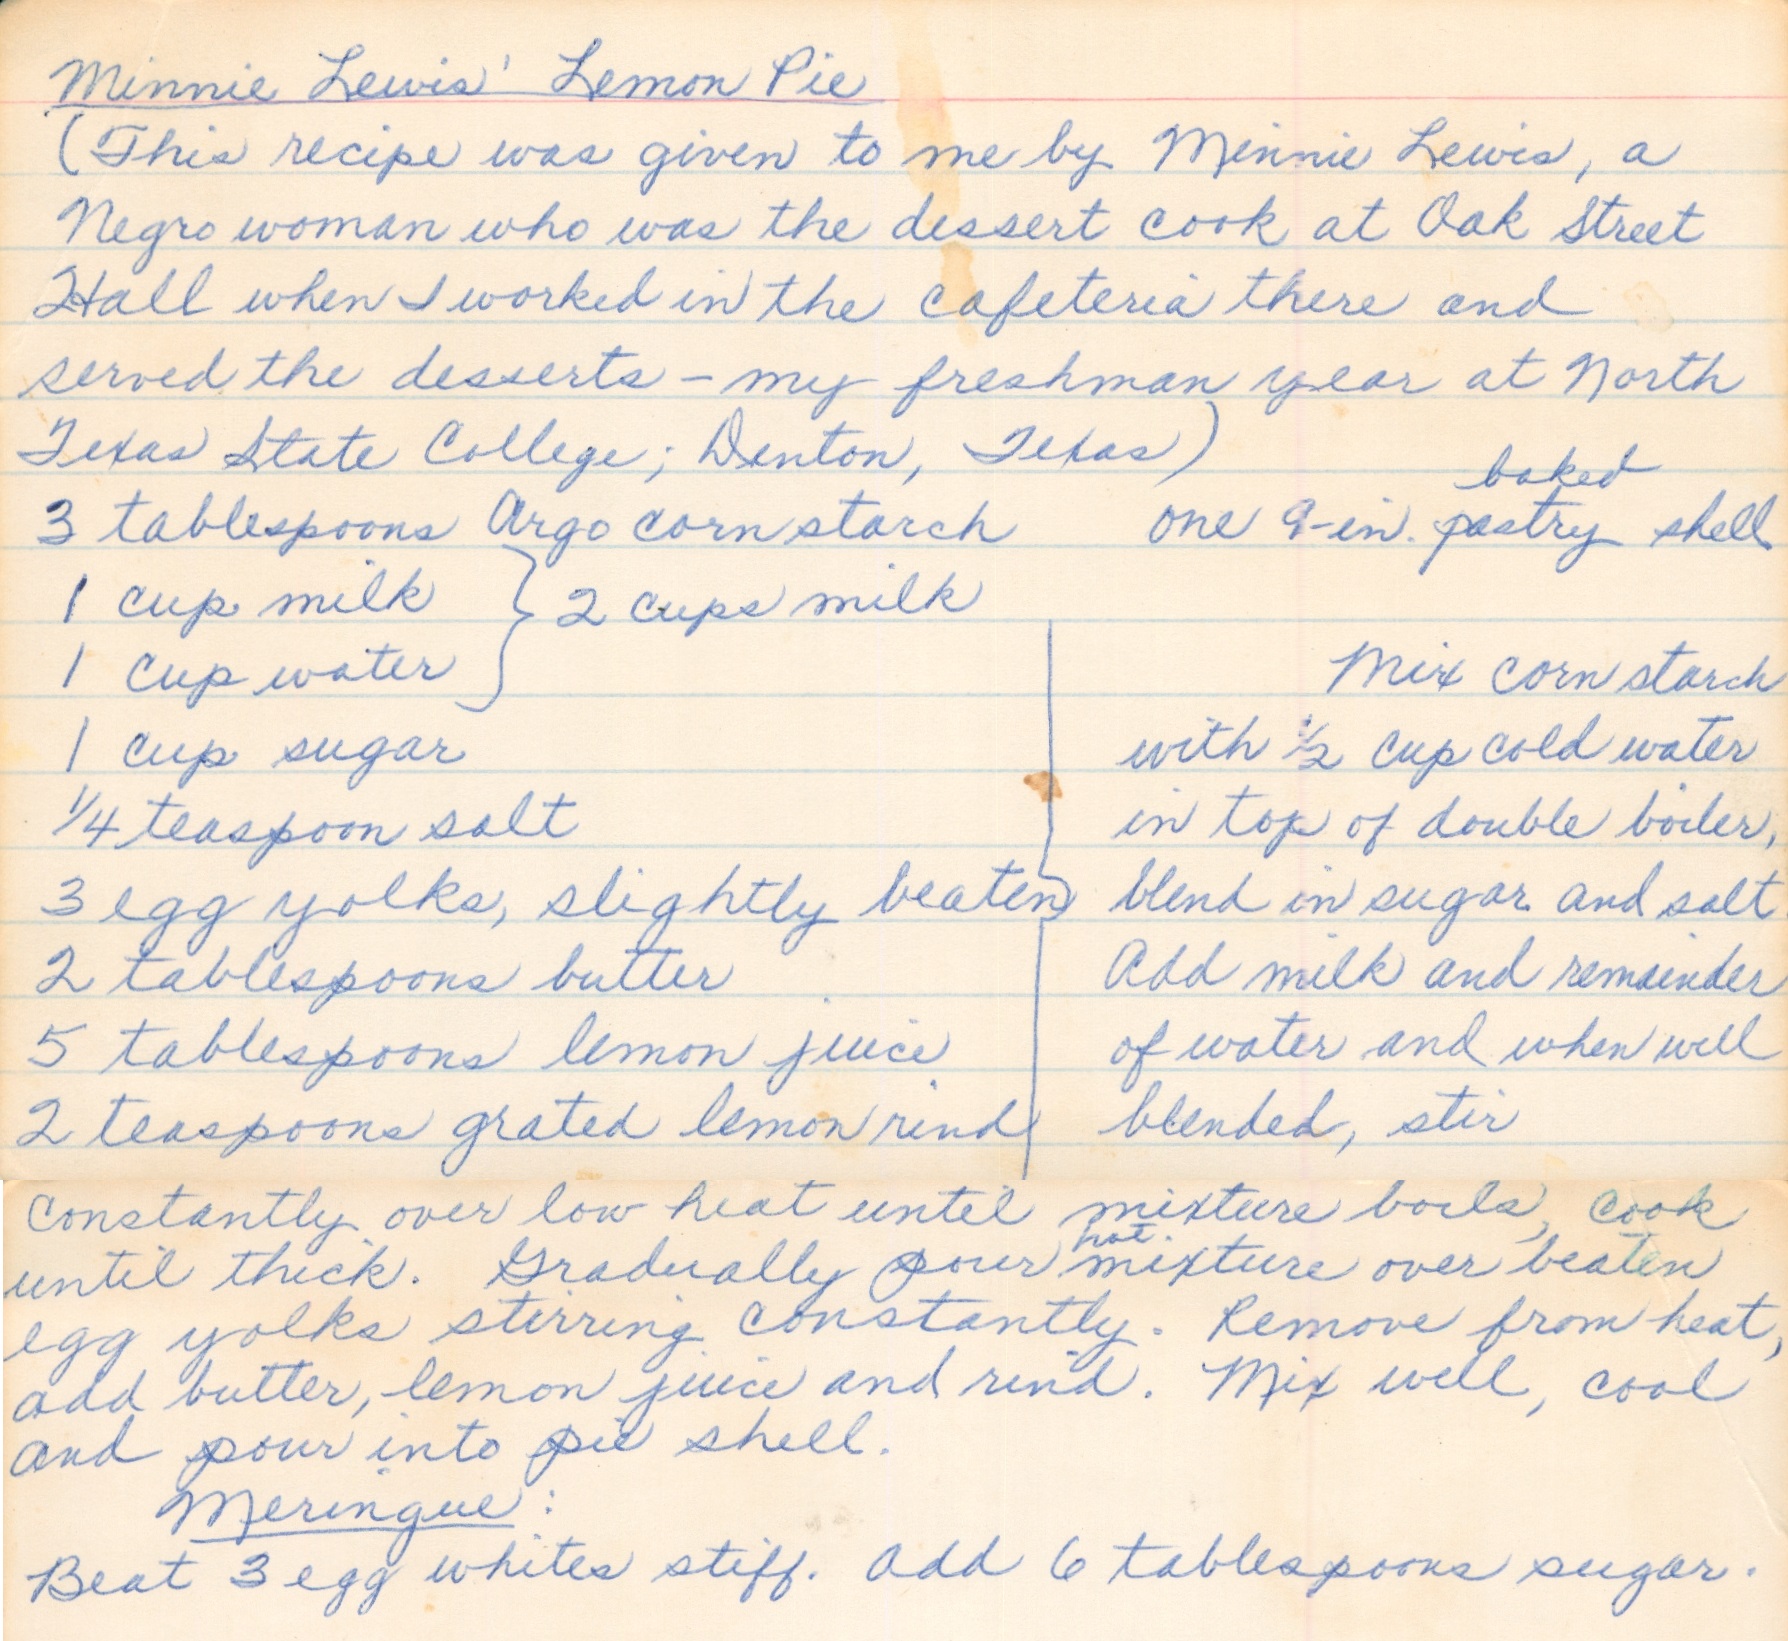 Minnie Lewis' Lemon Pie
(This recipe was given to me by Minnie Lewis, a
Negro woman who was the dessert cook at Oak Street
Hall when I worked in the cafeteria there and
served the desserts - my freshman year at North
Texas State College; Denton, Texas)
3 tablespoons Argo corn starch
one 9-in. baked pastry shell
1 cup milk } 2 cups milk
1 cup water
1 cup sugar
1/4 teaspoon salt
3 egg yolks, slightly beaten
2 tablespoons butter
5 tablespoons lemon juice
2 teaspoons grated lemon rind
Mix corn starch
with 1/2 cup cold water
in top of double boiler,
blend in sugar and salt
Add milk and remainder
of water and when well
blended, stir
constantly over low heat until mixture boils, cook
until thick. Gradually pour hot mixture over beaten
egg yolks stirring constantly. Remove from heat,
add butter, lemon juice and rind. Mix well, cool
and pour into pie shell.
Meringue:
Beat 3 egg whites stiff. Add 6 tablespoons sugar.